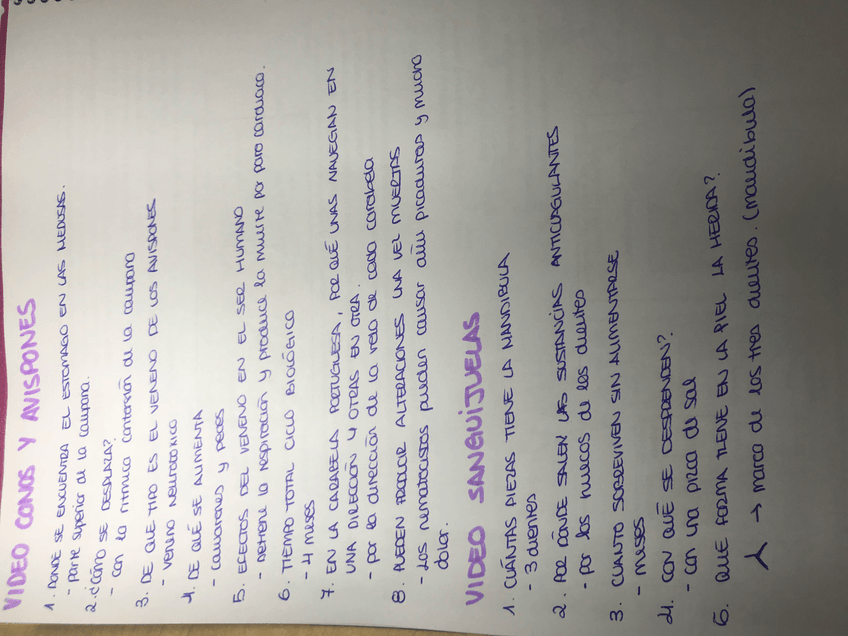 VIDEO CONOS Y AVISPONES
1. DONDE SE ENCUENTRA EL ESTOMAGO EN LAS MEDUSAS.
- parte superior de la campana.
2. ¿CÓMO SE DESPLAZA?
- con la rítmica contorsión de la campana
3. DE QUE TIPO ES EL VENENO DE LOS AVISPONES
- VENENO NEUROTOXICO
4. DE QUÉ SE AUMENTA
- camarones y peces
5. EFECTOS DEL VENENO EN EL SER HUMANO
- detiene la respiración y produce la muerte por paro cardiaco.
6. TIEMPO TOTAL CICLO BIOLÓGICO
- 4 meses
7. EN LA CARABELA PORTUGUESA, POR QUÉ UNAS NAVEGAN EN
UNA DIRECCIÓN Y OTRAS EN OTRA.
- por la dirección de la vela de cada carabela
8. PUEDEN PROVOCAR ALTERACIONES UNA VEZ MUERTAS
- Los nematocistos pueden causar aún picaduras y mucho
dolor.
VIDEO SANGUIJUELAS
1. CUÁNTAS PIEZAS TIENE LA MANDIBULA
- 3 dientes
2. POR DÓNDE SALEN LAS SUSTANCIAS ANTICUAGULANTES
- por los huecos de los dientes
3. CUANTO SOBREVIVEN SIN ALIMENTARSE
- meses
4. CON QUÉ SE DESPRENDEN?
- con una pizca de sal
6. QUE FORMA TIENE EN LA PIEL LA HERIDA?
→ marca de los tres dientes. (mandibula)